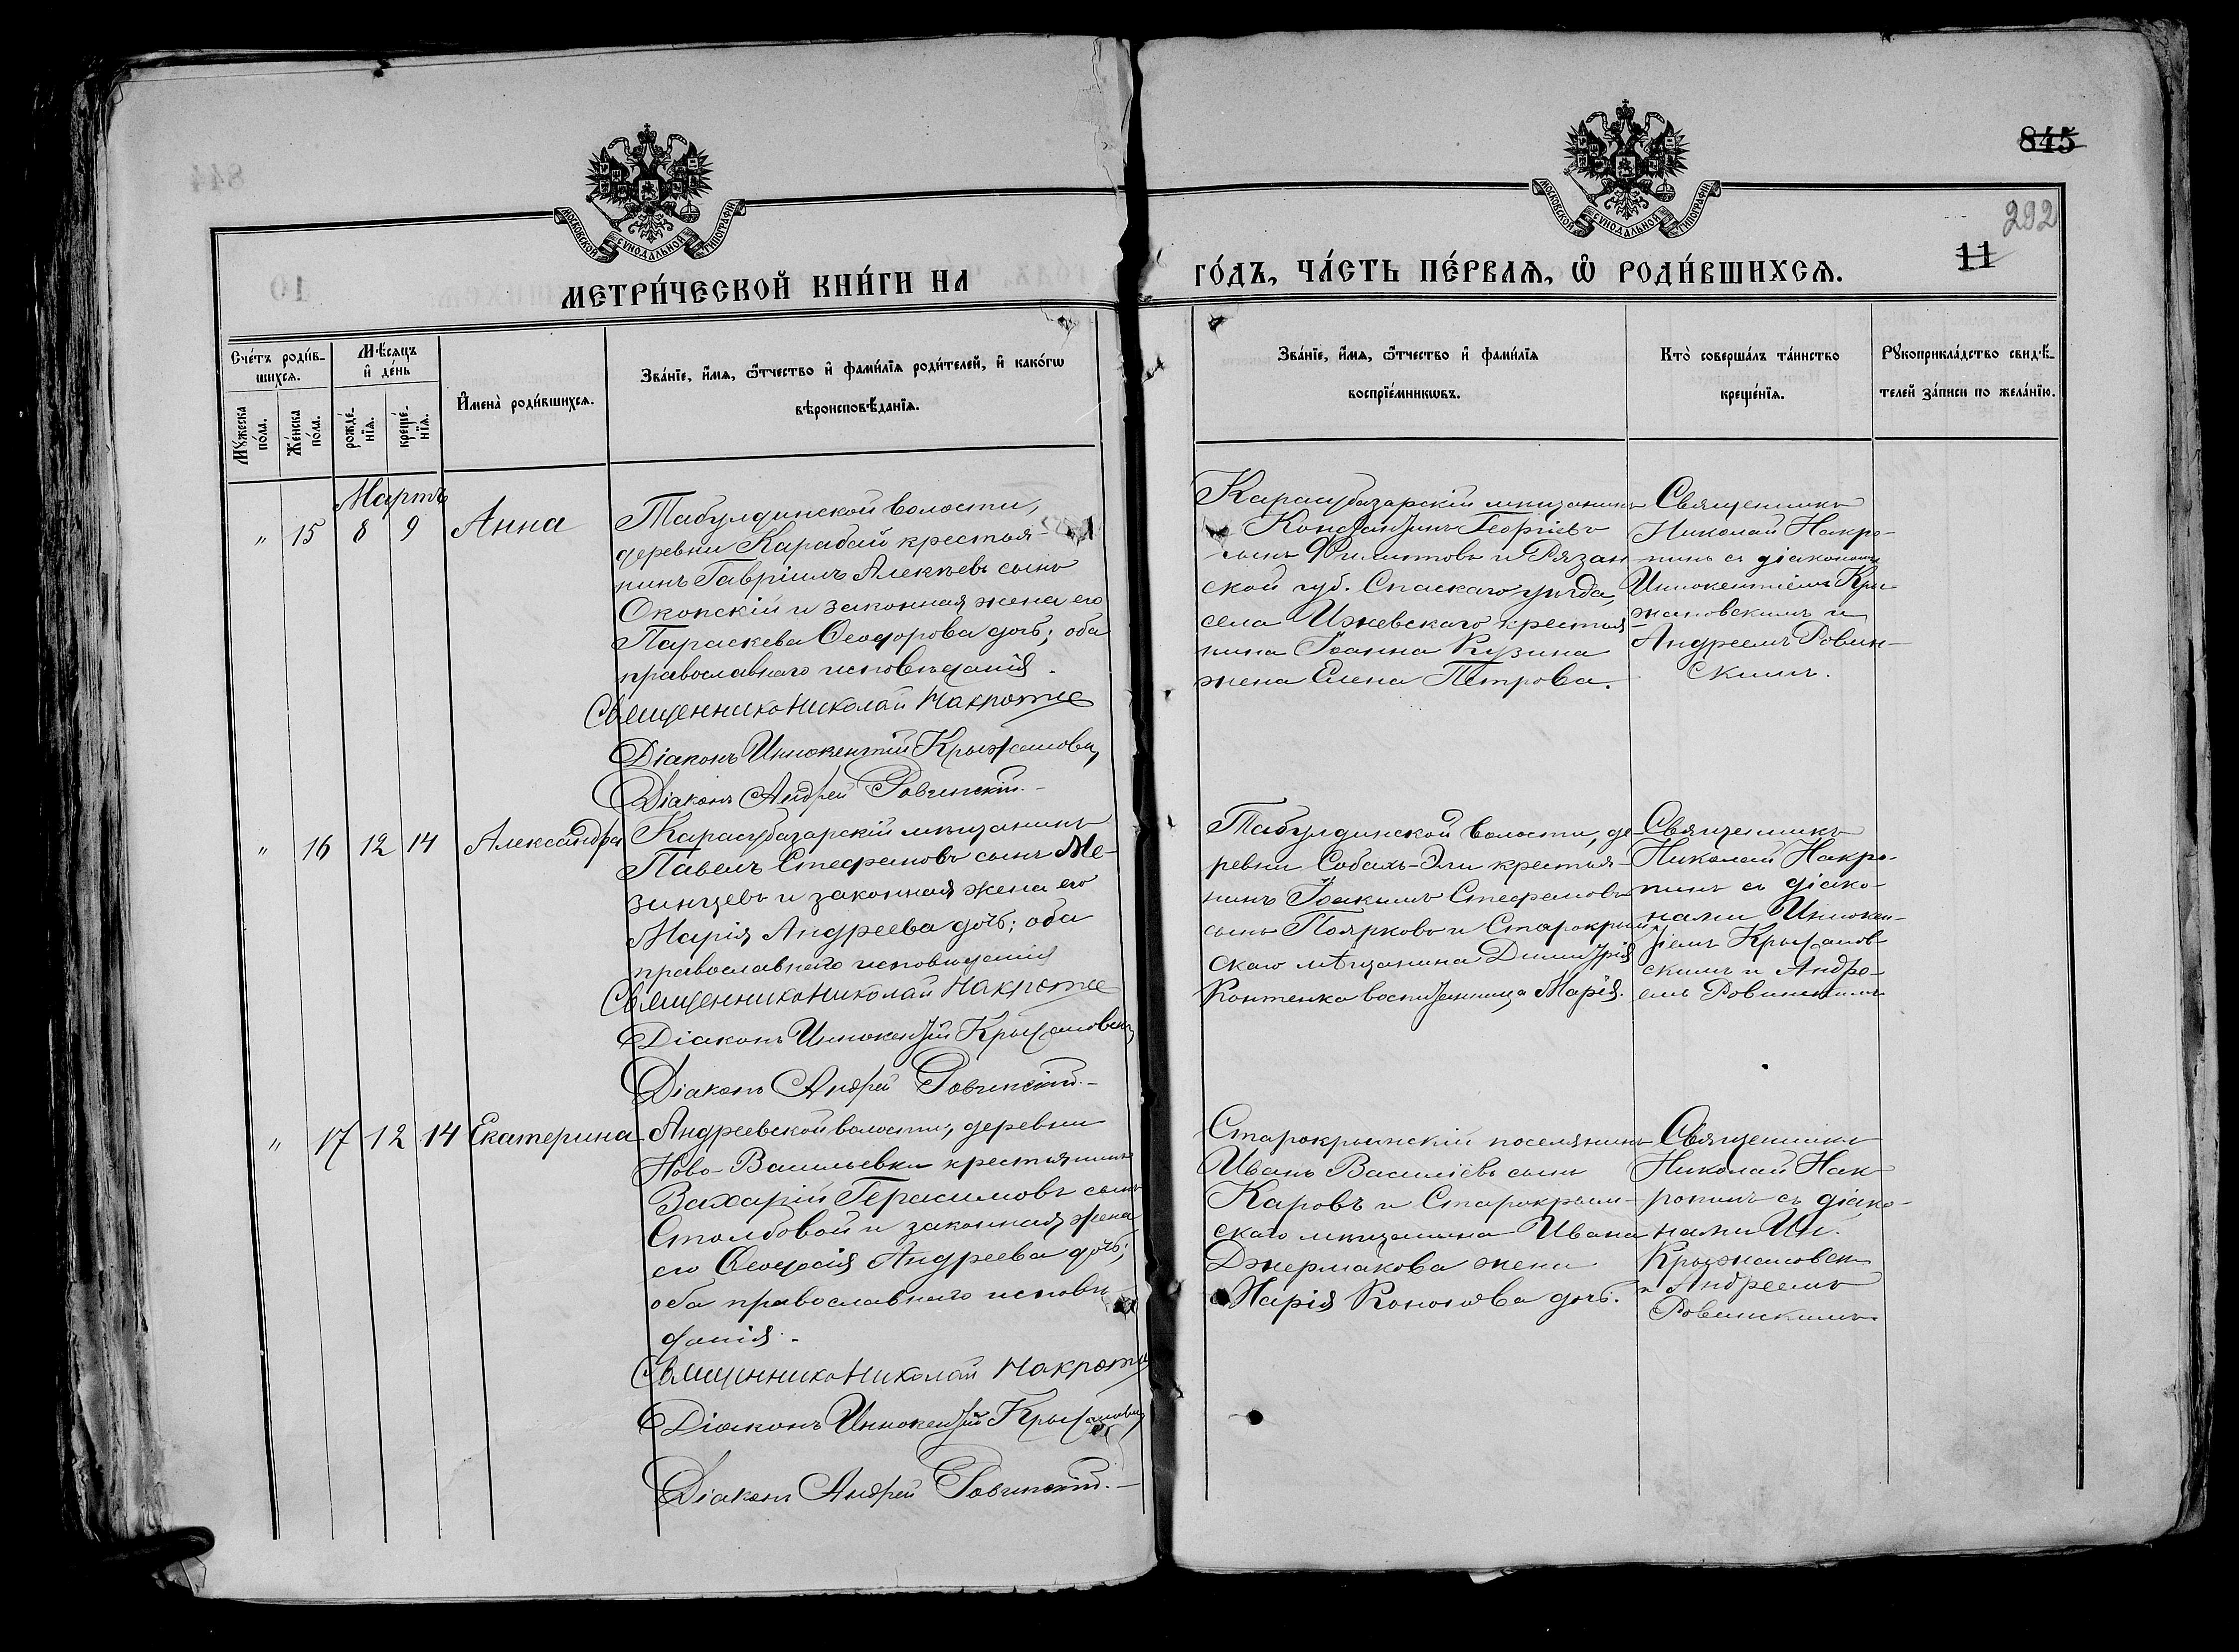 845
292
11
МОСКОВСКОЙ СУНОДАЛЬНОЙ ТИПОГРАФІИ
МОСКОВСКОЙ СУНОДАЛЬНОЙ ТИПОГРАФІИ
МЕТРИ́ЧЕСКОЙ КНИ́ГИ НА
ГО́ДЪ, ЧА́СТЬ ПЕ́РВАѦ, Ѡ РОДИ́ВШИХСѦ.
Сче́тъ роди́в-
шихсѧ.
Мꙋжеска
по́ла.
Же́нска
по́ла.
Мѣ́сѧцъ
и҆ де́нь
рожде́-
нїѧ.
креще́-
нїѧ.
И҆мена̀ роди́вшихсѧ.
Зва́нїе, и҆́мѧ, ѻ҆́тчество и҆ фами́лїѧ роди́телей, и҆ како́гѡ
вѣроисповѣ́данїѧ.
Зва́нїе, и҆́мѧ, ѻ҆́тчество и҆ фами́лїѧ
воспрїе́мникѡвъ.
Кто̀ соверша́лъ та́инство
креще́нїѧ.
Рꙋкоприкла́дство свидѣ́-
телей за́писи по жела́нїю.
Мартъ
" 15 8 9 Анна
Табулдинской волости,
деревни Карабай крестья-
нинъ Гавріилъ Алекѣевъ сынъ
Оконскій и законная жена его
Параскева Ѳеодорова дочь; оба
православнаго исповѣданія.
Священникъ Николай Накропи
Діаконъ Иннокентій Крыжановск
Діаконъ Андрей Ровинскій.-
Карасубазарскій мѣщанинъ
Константинъ Георгіевъ
сынъ Филиповъ и Рязан
ской губ. Спаскаго уѣзда,
села Ижевскаго крестья
нина Іоанна Кузина
жена Елена Петрова.
Священникъ
Николай Накро-
пинъ съ діакономъ
Иннокентіемъ Кры
жановскимъ и
Андреемъ Ровин-
скимъ.
" 16 12 14 Александра
Карасубазарскій мѣщанинъ
Павелъ Стефановъ сынъ Ме-
зинцевъ и законная жена его
Марія Андреева дочь; оба
православнаго исповѣданія
Священникъ Николай Накропи
Діаконъ Иннокентій Крыжановск
Діаконъ Андрей Ровинскій.-
Табулдинской волости, де-
ревни Собахъ-Эли крестья-
нинъ Іоакимъ Стефановъ
сынъ Поярковъ и Старокрым
скаго мѣщанина Димитрія
Контенка воспитанница Марія.
Священникъ
Николай Накро-
пинъ съ діако-
нами Инокен-
тіемъ Крыжанов
скимъ и Андре-
емъ Ровинскимъ
" 17 12 14 Екатерина
Андреевской волости, деревни
Ново-Васильевки крестьянинъ
Захарій Герасимовъ сынъ
Столбовой и законная жена
его Ѳеодосія Андреева дочь;
оба православнаго исповѣ
данія.-
Священникъ Николай Накропи
Діаконъ Иннокентій Крыжановск
Діаконъ Андрей Ровинскій.-
Старокрымскій поселянинъ
Иванъ Василіевъ сынъ
Каровъ и Старокрым-
скаго мѣщанина Ивана
Джермакова жена
Марія Кононова дочь.
Священникъ
Николай Нак
ропинъ съ діако-
нами Ин.
Крыжановск
и Андреемъ
Ровинскимъ